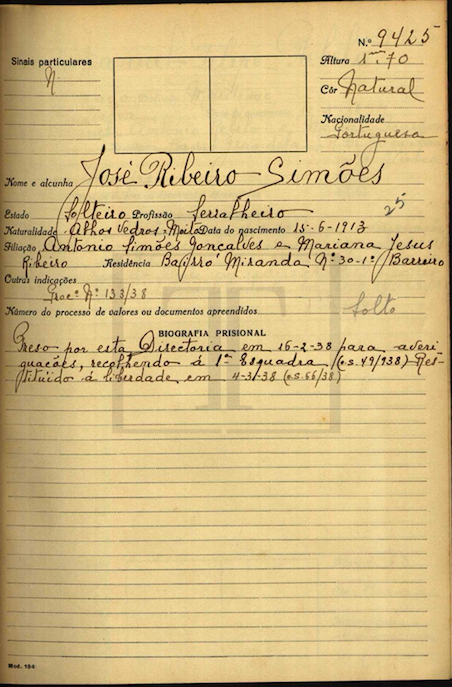 N.º 9425
Sinais particulares
N.
Altura 1m,70
Côr Natural
Nacionalidade
Portuguesa
Nome e alcunha José Ribeiro Simões
Estado Solteiro Profissão Serralheiro 25
Naturalidade Alhos Vedros, Moita Data do nascimento 15-6-1913
Filiação Antonio Simões Gonçalves e Mariana Jesus
Ribeiro Residência Bairro Miranda Nº 30-1º Barreiro
Outras indicações
Procº Nº 133/38
Número do processo de valores ou documentos apreendidos Solto
BIOGRAFIA PRISIONAL
Preso por esta Directoria em 16-2-38 para averi-
guacões, recolhendo á 1ª Esquadra (o.s. 49/938) Res-
tituido á liberdade em 4-3-38 (o.s. 66/38)
Mod. 194